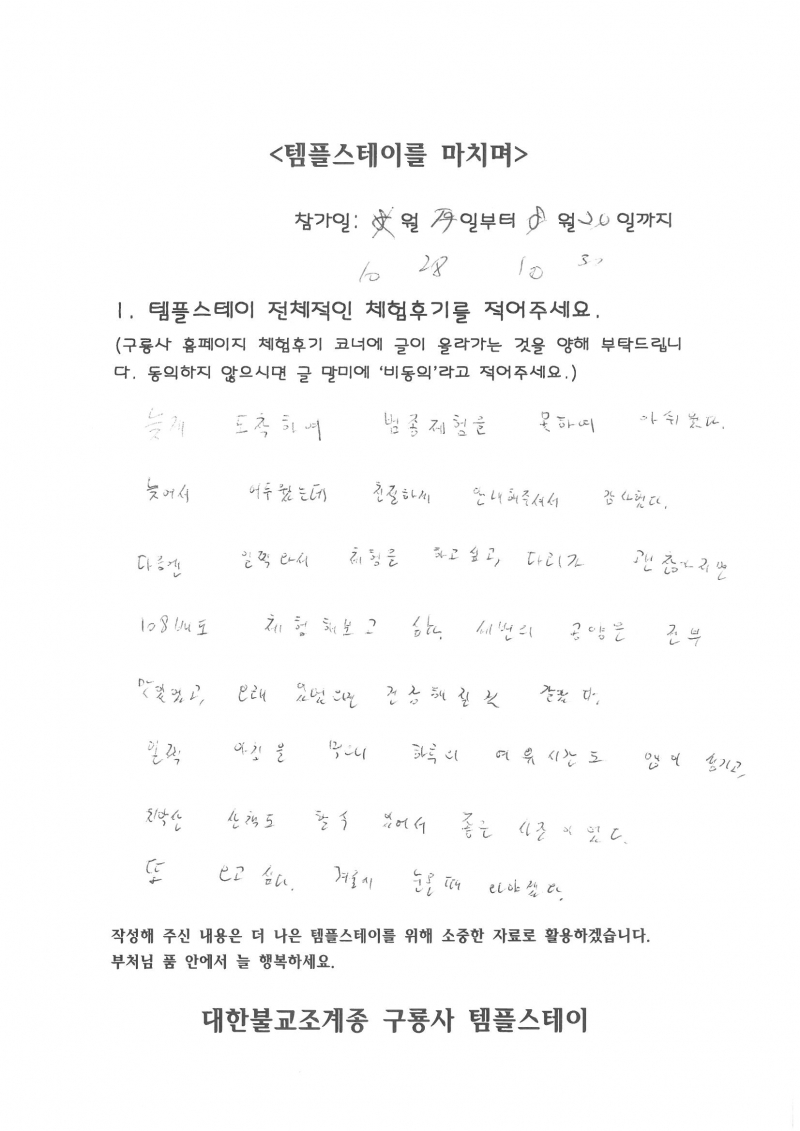 <템플스테이를 마치며>
참가일: 월 일부터 월 20 일까지
10 28 10 30
1. 템플스테이 전체적인 체험후기를 적어주세요.
(구룡사 홈페이지 체험후기 코너에 글이 올라가는 것을 양해 부탁드립니
다. 동의하지 않으시면 글 말미에 '비동의'라고 적어주세요.)
늦게 도착하여 범종체험을 못하여 아쉬웠다.
늦어서 어두웠는데 친절하게 안내해주셔서 감사했다.
다음엔 일찍와서 체험을 하고싶고, 다리가 괜찮아지면
108배도 체험해보고 싶다. 세번의 공양은 전부
맛있었고, 오래 있었으면 건강해질것 같았다.
일찍 아침을 먹으니 하루의 여유시간도 많이 생기고,
치악산 산책도 할 수 있어서 좋은 시간이었다.
또 오고 싶다. 겨울에 눈올때 와야겠다.
작성해 주신 내용은 더 나은 템플스테이를 위해 소중한 자료로 활용하겠습니다.
부처님 품 안에서 늘 행복하세요.
대한불교조계종 구룡사 템플스테이